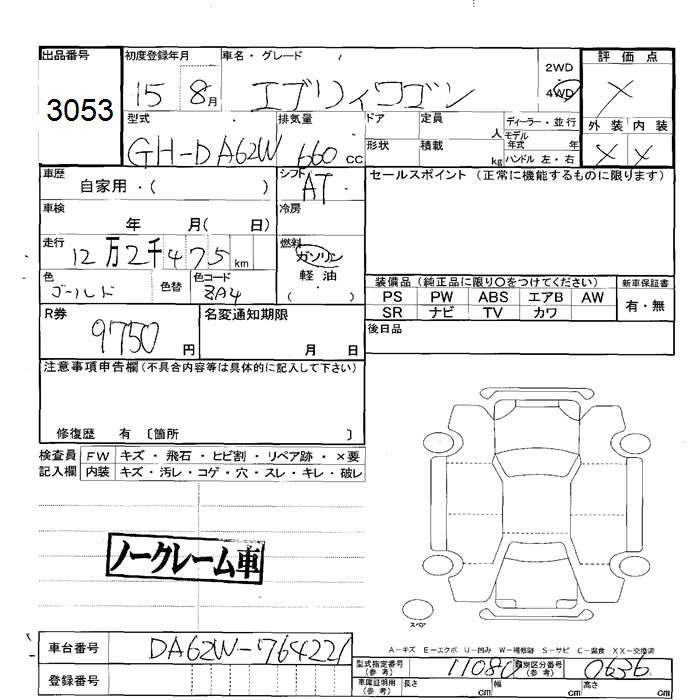 出品番号
3053
初度登録年月
15 8月
車名・グレード
エブリィワゴン
2WD
4WD
評価点
X
外装 内装
X X
型式
GH-DA62W
排気量
660 cc
ドア
定員
人
ディーラー・並行
モデル年式 年
形状
積載
kg
ハンドル 左・右
車歴
自家用・( )
シフト
AT
セールスポイント (正常に機能するものに限ります)
車検
年 月( 日)
冷房
走行
12万2千475km
燃料
ガソリン
軽油
( ・ )
色
ゴールド
色替
色コード
装備品 (純正品に限り○をつけてください)
新車保証書
PS PW ABS エアB AW
SR ナビ TV カワ
有・無
R券
9750円
名変通知期限
月 日
後日品
注意事項申告欄(不具合内容等は具体的に記入して下さい)
修復歴 有 〔箇所 〕
検査員 FW キズ・飛石・ヒビ割・リペア跡・×要
記入欄 内装 キズ・汚レ・コゲ・穴・スレ・キレ・破レ
ノークレーム車
スペア
A-キズ E-エクボ U-凹み W-補修跡 S-サビ C-腐食 XX-交換済
車台番号
DA62W-764221
登録番号
型式指定番号(参考)
11080
類別区分番号(参考)
0636
車庫証明用(参考)
長さ cm
幅 cm
高さ cm